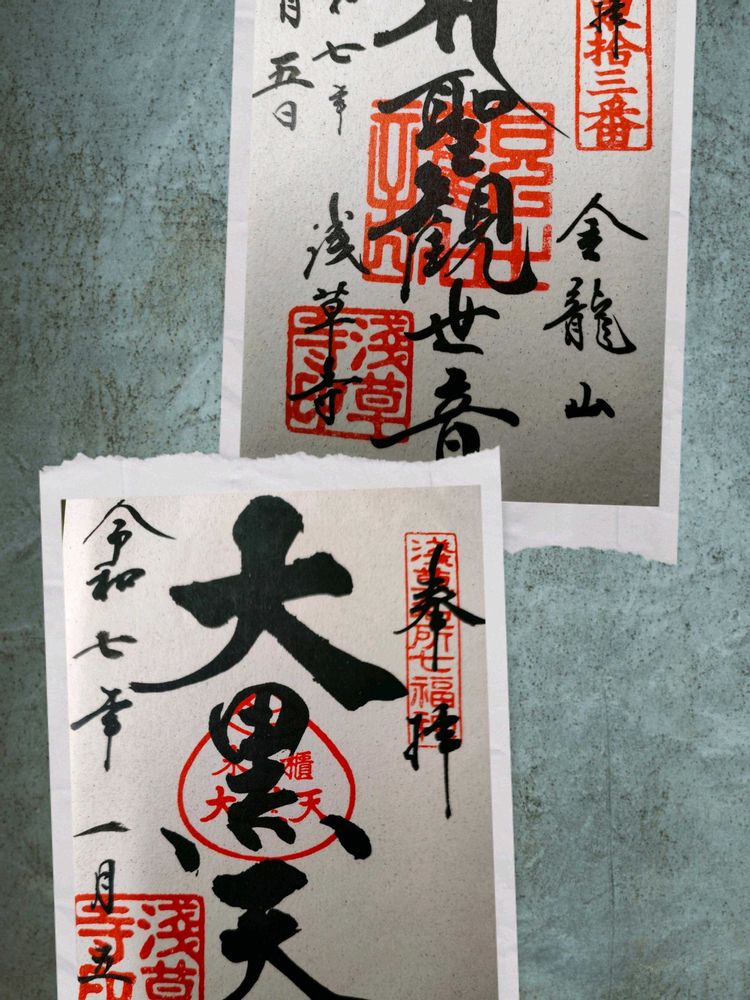 拝
東拾三番
金龍山
聖観世音
浅草寺
淺草寺印
和七年
月五日
奉拝
淺草名所七福神
大黒天
米櫃
大黒天
令和七年一月五
淺草寺印